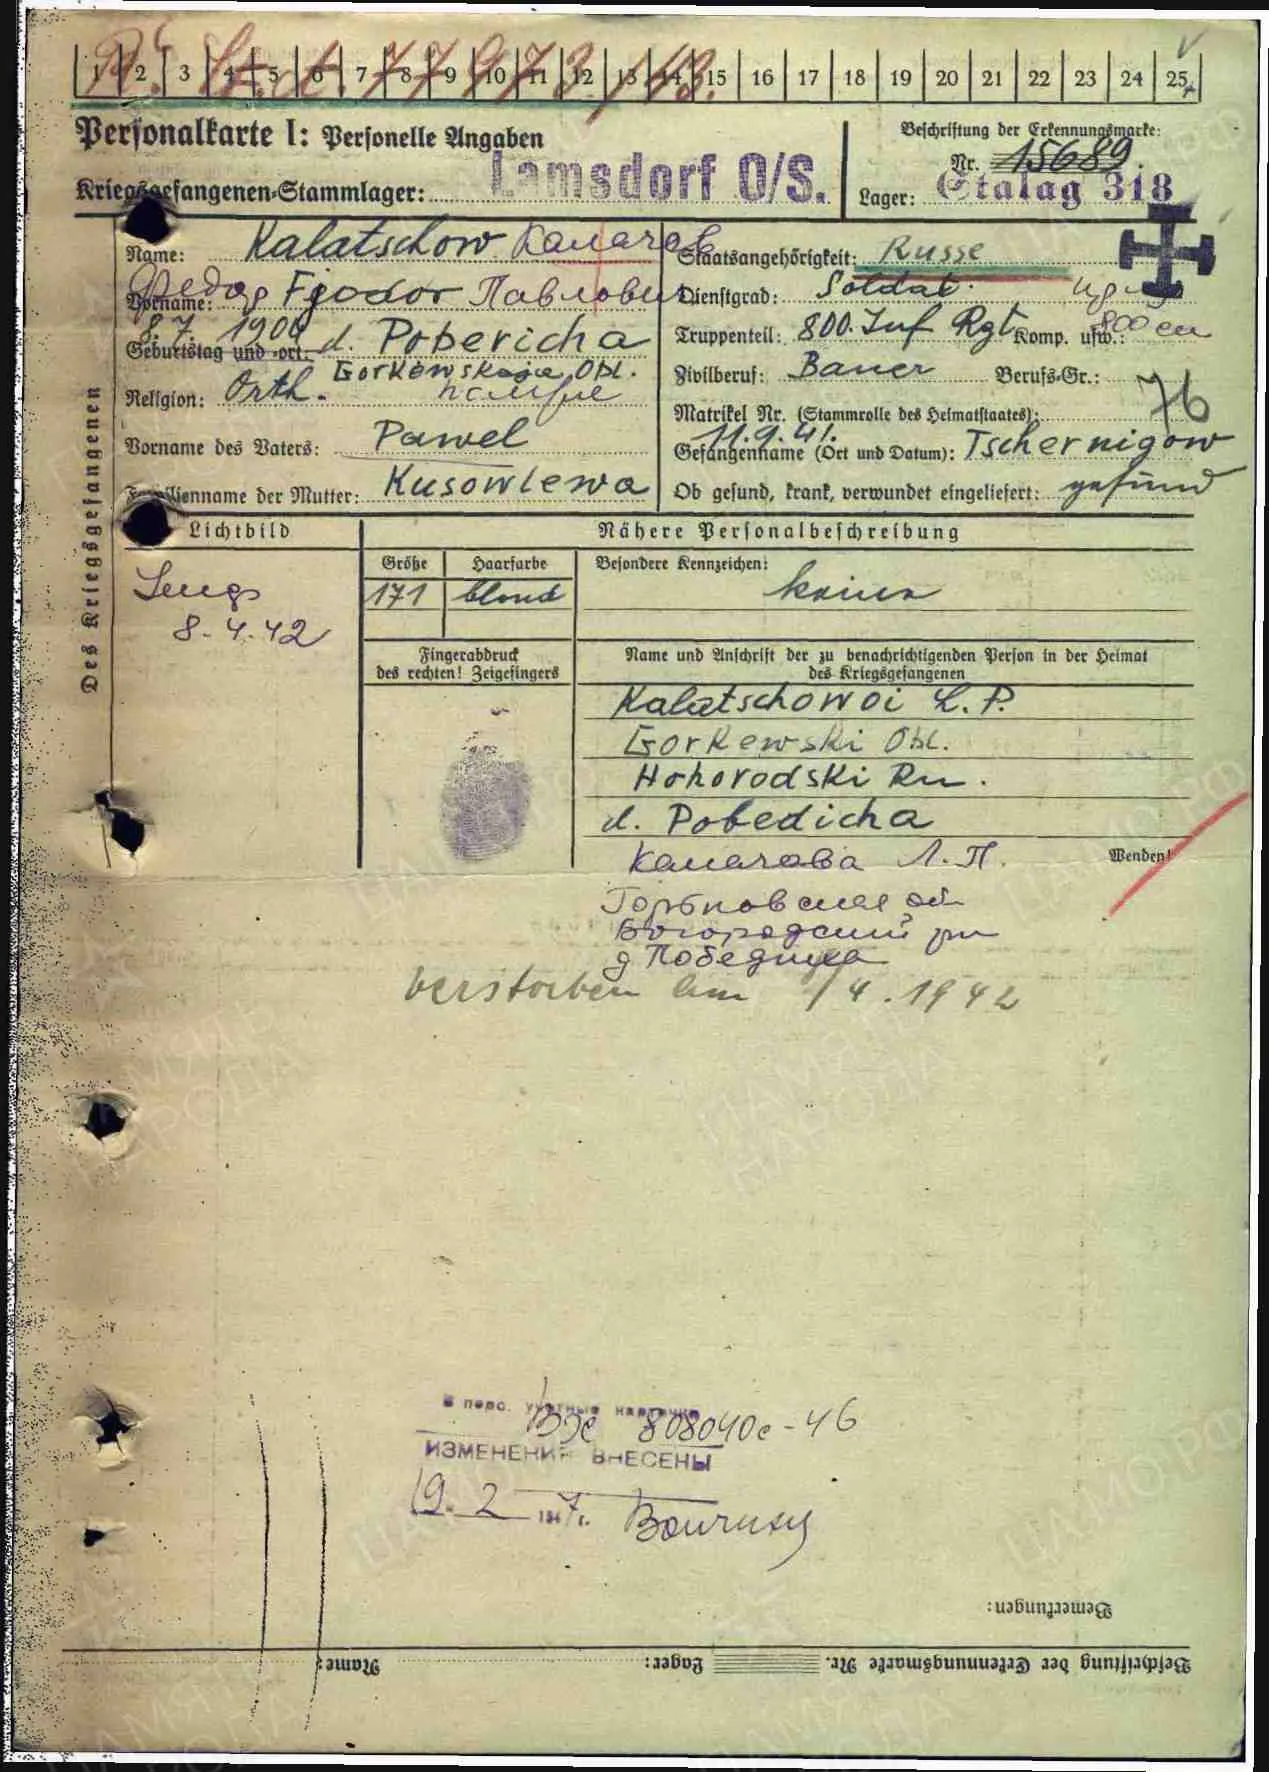 1 2 3 4 5 6 7 8 9 10 11 12 13 14 15 16 17 18 19 20 21 22 23 24 25
Personalkarte I: Personelle Angaben
Beschriftung der Erkennungsmarke:
Nr. 15689
Kriegsgefangenen-Stammlager: Lamsdorf O/S.
Lager: Stalag 318
Des Kriegsgefangenen
Name: Kalatschow Калачов
Staatsangehörigkeit: Russe
Федор
Vorname: Fjodor Павлович
Dienstgrad: Soldat
8.7. 1900
Geburtstag und -ort: d. Pobericha
Truppenteil: 800. Inf Rgt Komp. usw.: 800 сп
Gorkowskaja Obl.
Religion: Orth.
Zivilberuf: Bauer Berufs-Gr.:
76
Matrikel Nr. (Stammrolle des Heimatstaates):
Vorname des Vaters: Pawel
11.9.41.
Gefangennahme (Ort und Datum): Tschernigow
Familienname der Mutter: Kusowlewa
Ob gesund, krank, verwundet eingeliefert: gesund
Lichtbild
Nähere Personalbeschreibung
Größe Haarfarbe Besondere Kennzeichen:
171 blond keine
8.4.42
Fingerabdruck
des rechten! Zeigefingers
Name und Anschrift der zu benachrichtigenden Person in der Heimat
des Kriegsgefangenen
Kalatschowoi L. P.
Gorkewski Obl.
Hohorodski Rn.
d. Pobedicha
Калачова Л. П.
Wenden!
Горьковская об
Богородский рн
д Победиха
verstorben am 4.1942
В перс. учетные карточки
808040с-46
ИЗМЕНЕНИЯ ВНЕСЕНЫ
19. 2 1947г.
Bemerkungen:
Name: Lager: Beschriftung der Erkennungsmarke Nr.